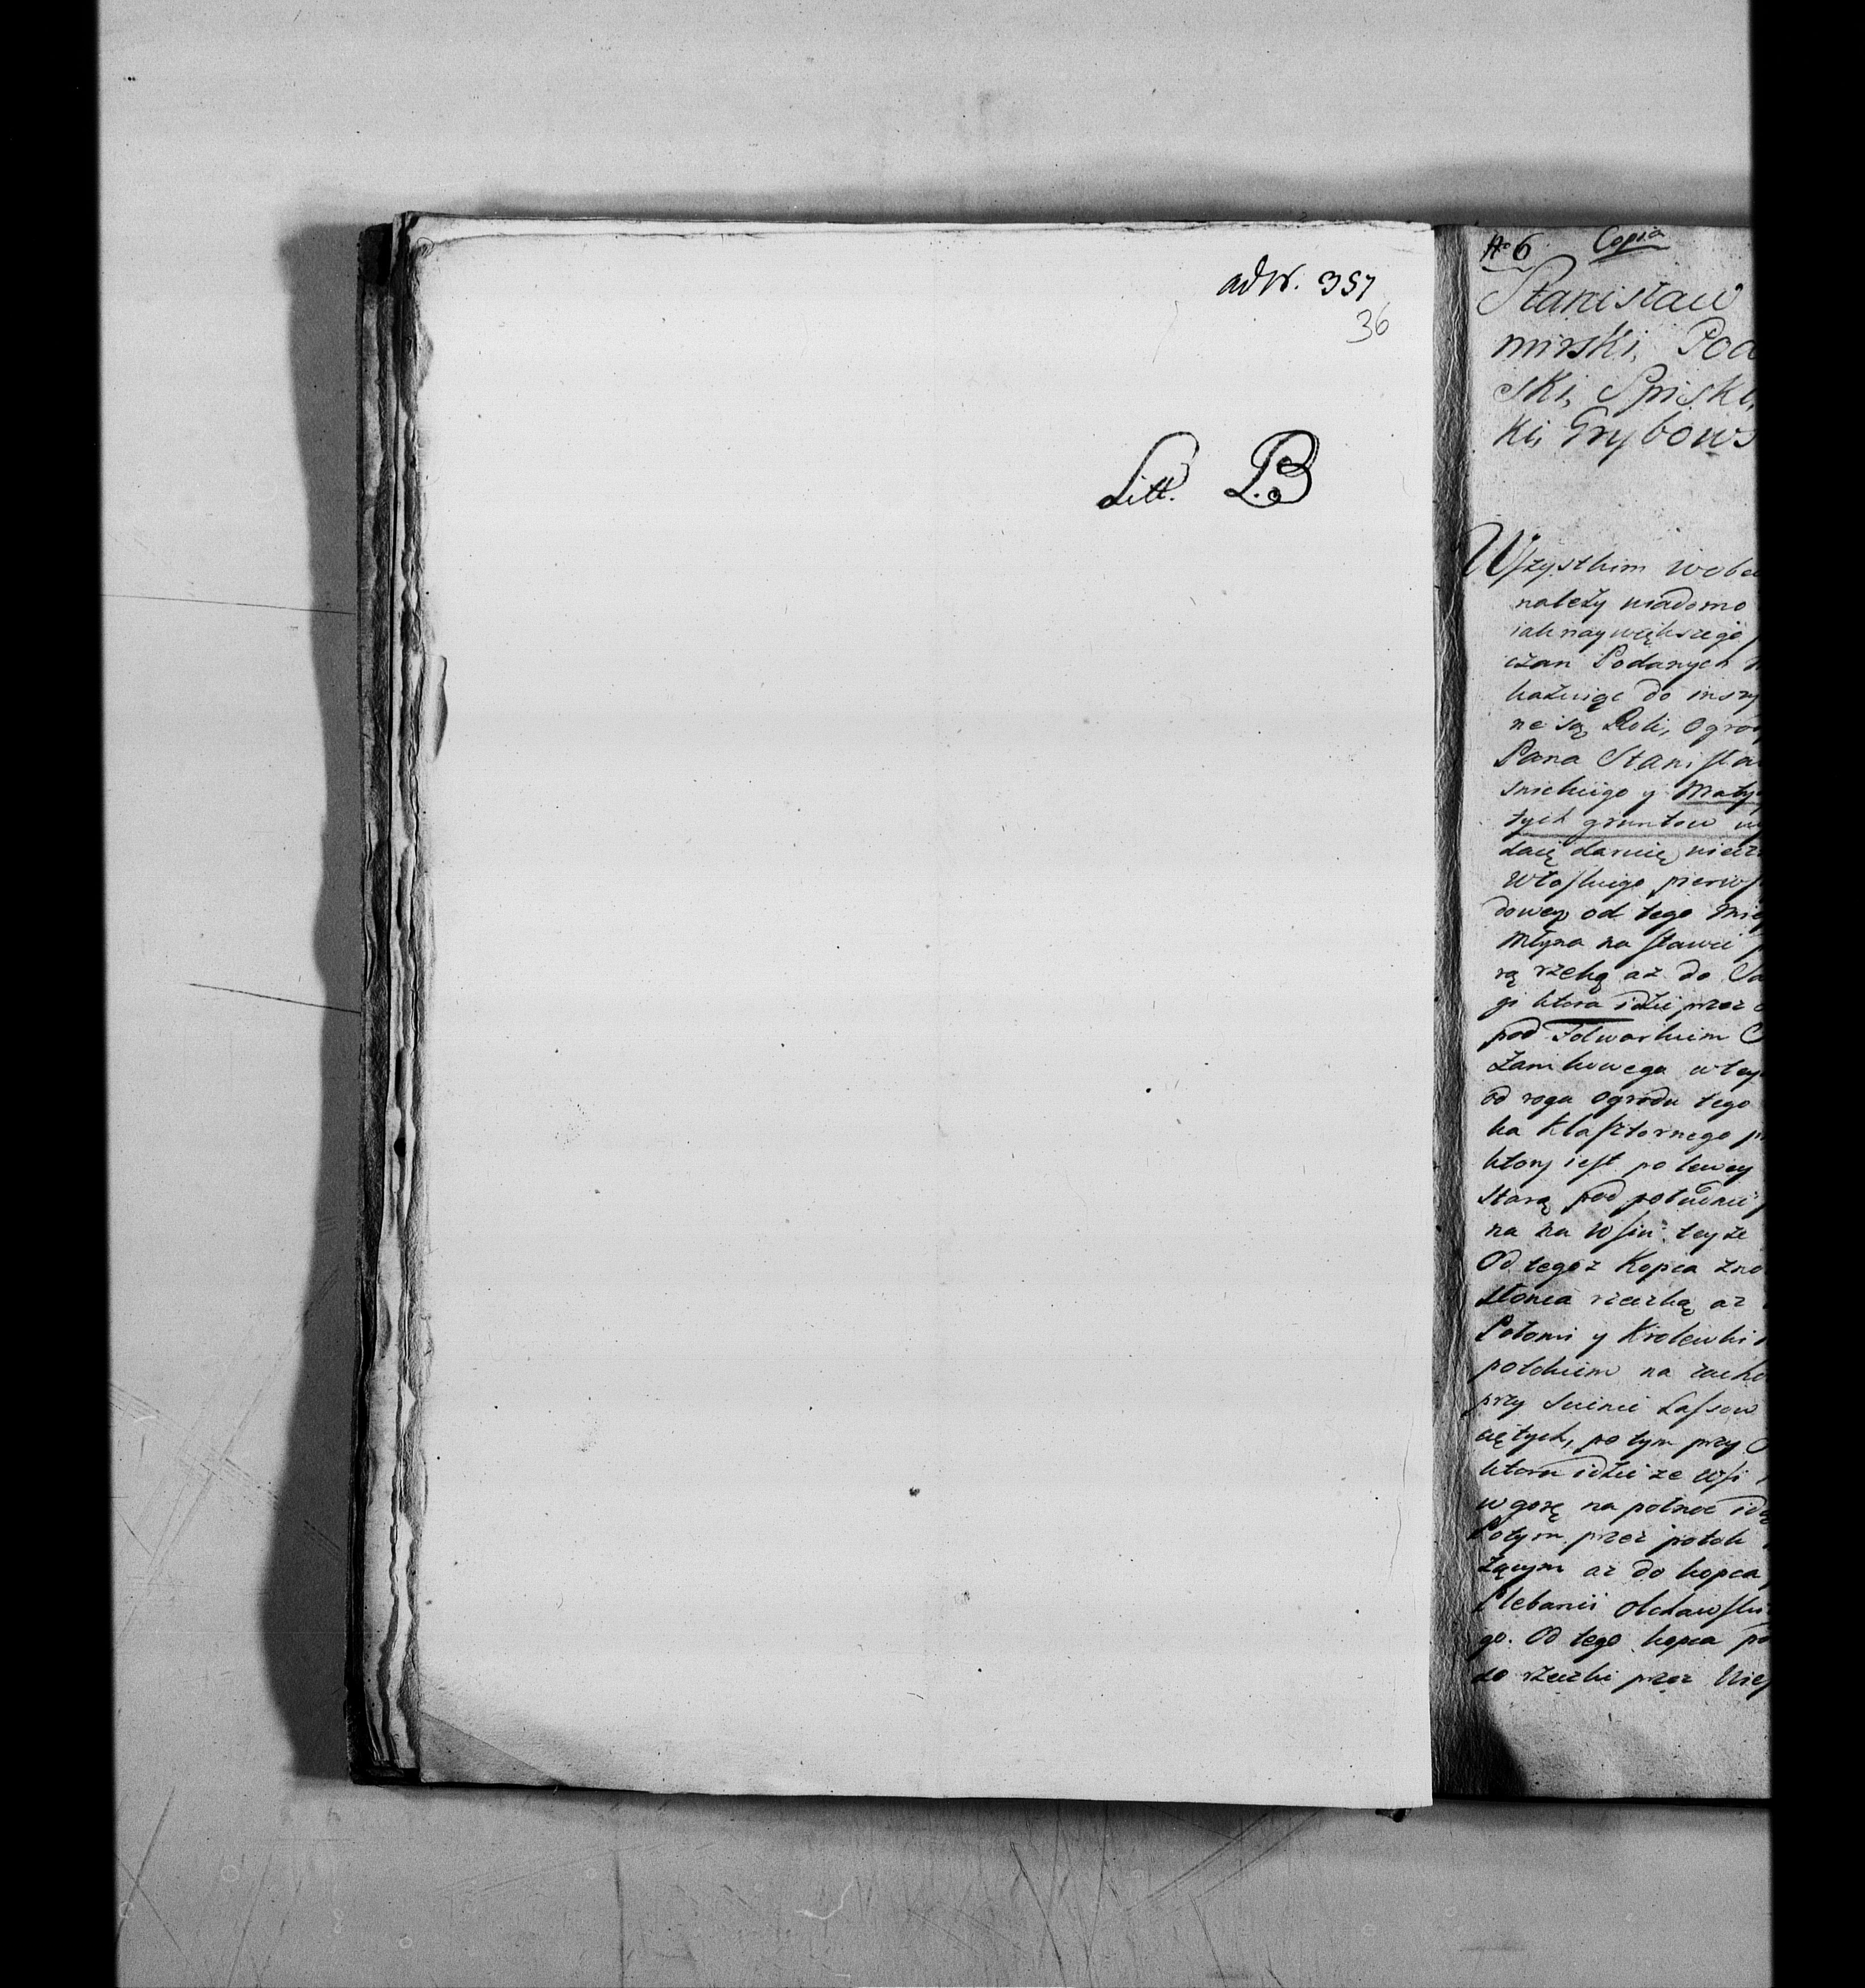 ad N. 357
36
Litt. B
No 6 Copia
Stanisław
mirski, Pod
ski, Spiski,
ki, Grybows
Wszystkim wobe
należy wiadomo
iak naywiększego
czan Podanych
każuiąc do inszy
ne są Roli, Ogro
Pana Stanisła
snickiego y Maty
tych gruntow wy
daię daruię
Włoskiego pierws
dowey od tego Mie
Młyna na stawie
rą rzeką aż do Sa
gi ktora idzie przez
pod Folwarkiem
Zamkowego w tey
od rogu ogrodu tego
ka Klasztornego
ktory iest po lewey
Starą pod południe
na ku Wsiu teyże
Od tegoż Kopca zno
słonca rzeczką aż
Połomi y Krolewski
potokiem na zacho
przy Lassow
ciętych, po tym przy
ktora idzie ze Wsi
w gorę na połnoc idą
Potym przez potok
żącym aż do kopca
Plebanii
go. Od tego kopca po
do rzeczki przez